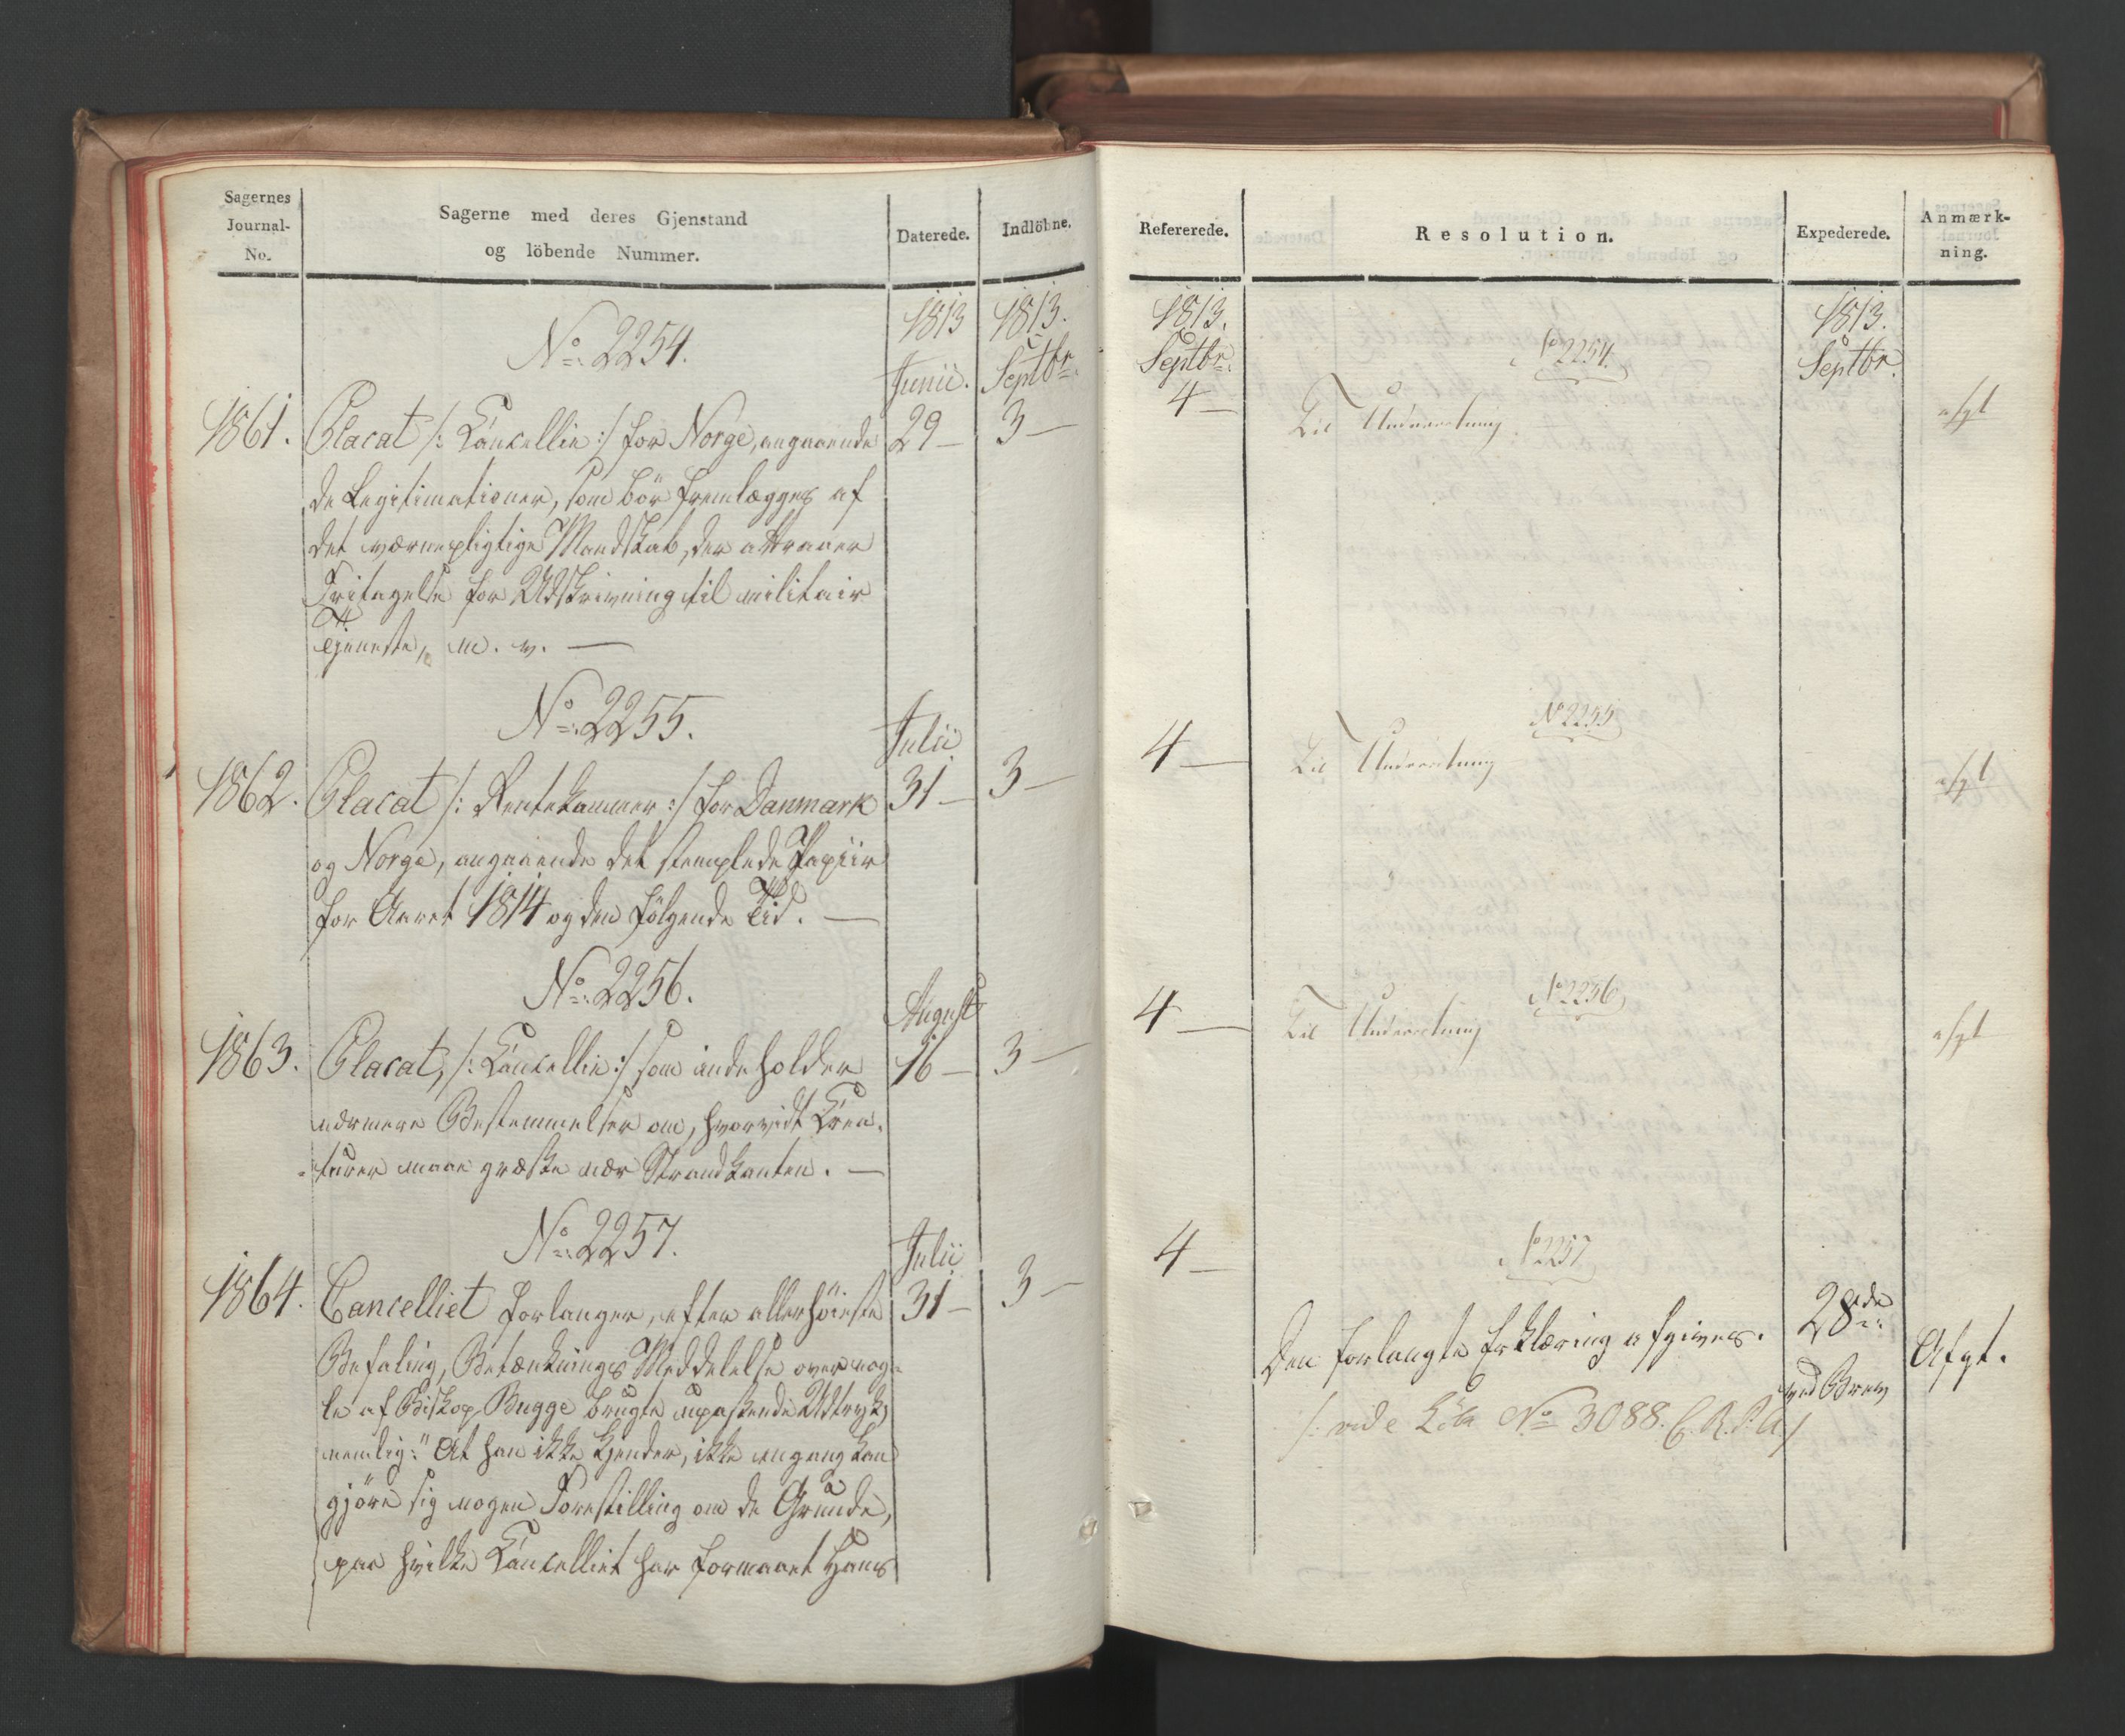 Sagernes
Journal-
No.
Sagerne med deres Gjenstand
og löbende Nummer.
Daterede.
Indlöbne.
1813
1813.
No. 2254.
Junii.
Septbr.
1861.
Placat /: Cancellie :/ for Norge, angaaende
29 —
3 —
de Legitimationer, som bör fremlægges af
det værnepligtige Mandskab, der attraaer
Fritagelse for Udskrivning til militair
Tjeneste, m. v. —
No. 2255.
Julii
1862.
Placat /: Rentekammer :/ for Danmark
31 —
3 —
og Norge, angaaende det stemplede Papiir
for Aaret 1814 og den fölgende Tid. —
No. 2256.
August
1863.
Placat, /: Cancellie :/ som indeholder
16 —
3 —
nærmere Bestemmelser om, hvorvidt Crea-
-turer maae græsse nær Strandkanten. —
No. 2257.
Julii
1864.
Cancelliet forlanger, efter allerhöieste
31 —
3 —
Befaling, Betænknings Meddelelse over nog-
le af Biskop Bugge brugte upassende Udtryk,
nemlig: "At han ikke kjender, ikke engang kan
gjöre sig nogen Forestilling om de Grunde,
paa hvilke Cancelliet har formaaet Hans
Refererede.
Resolution.
Expederede.
Anmærk-
ning.
1813.
1813.
Septbr.
No 2254.
Septbr.
4 —
Til Underretning
afgt
No 2255
4 —
Til Underretning
afgt
No 2256
4 —
Til Underretning
afgt
No 2257
4 —
28de
Den forlangte Erklæring afgives.
ved Brev
Afgt.
/: vide No 3088.